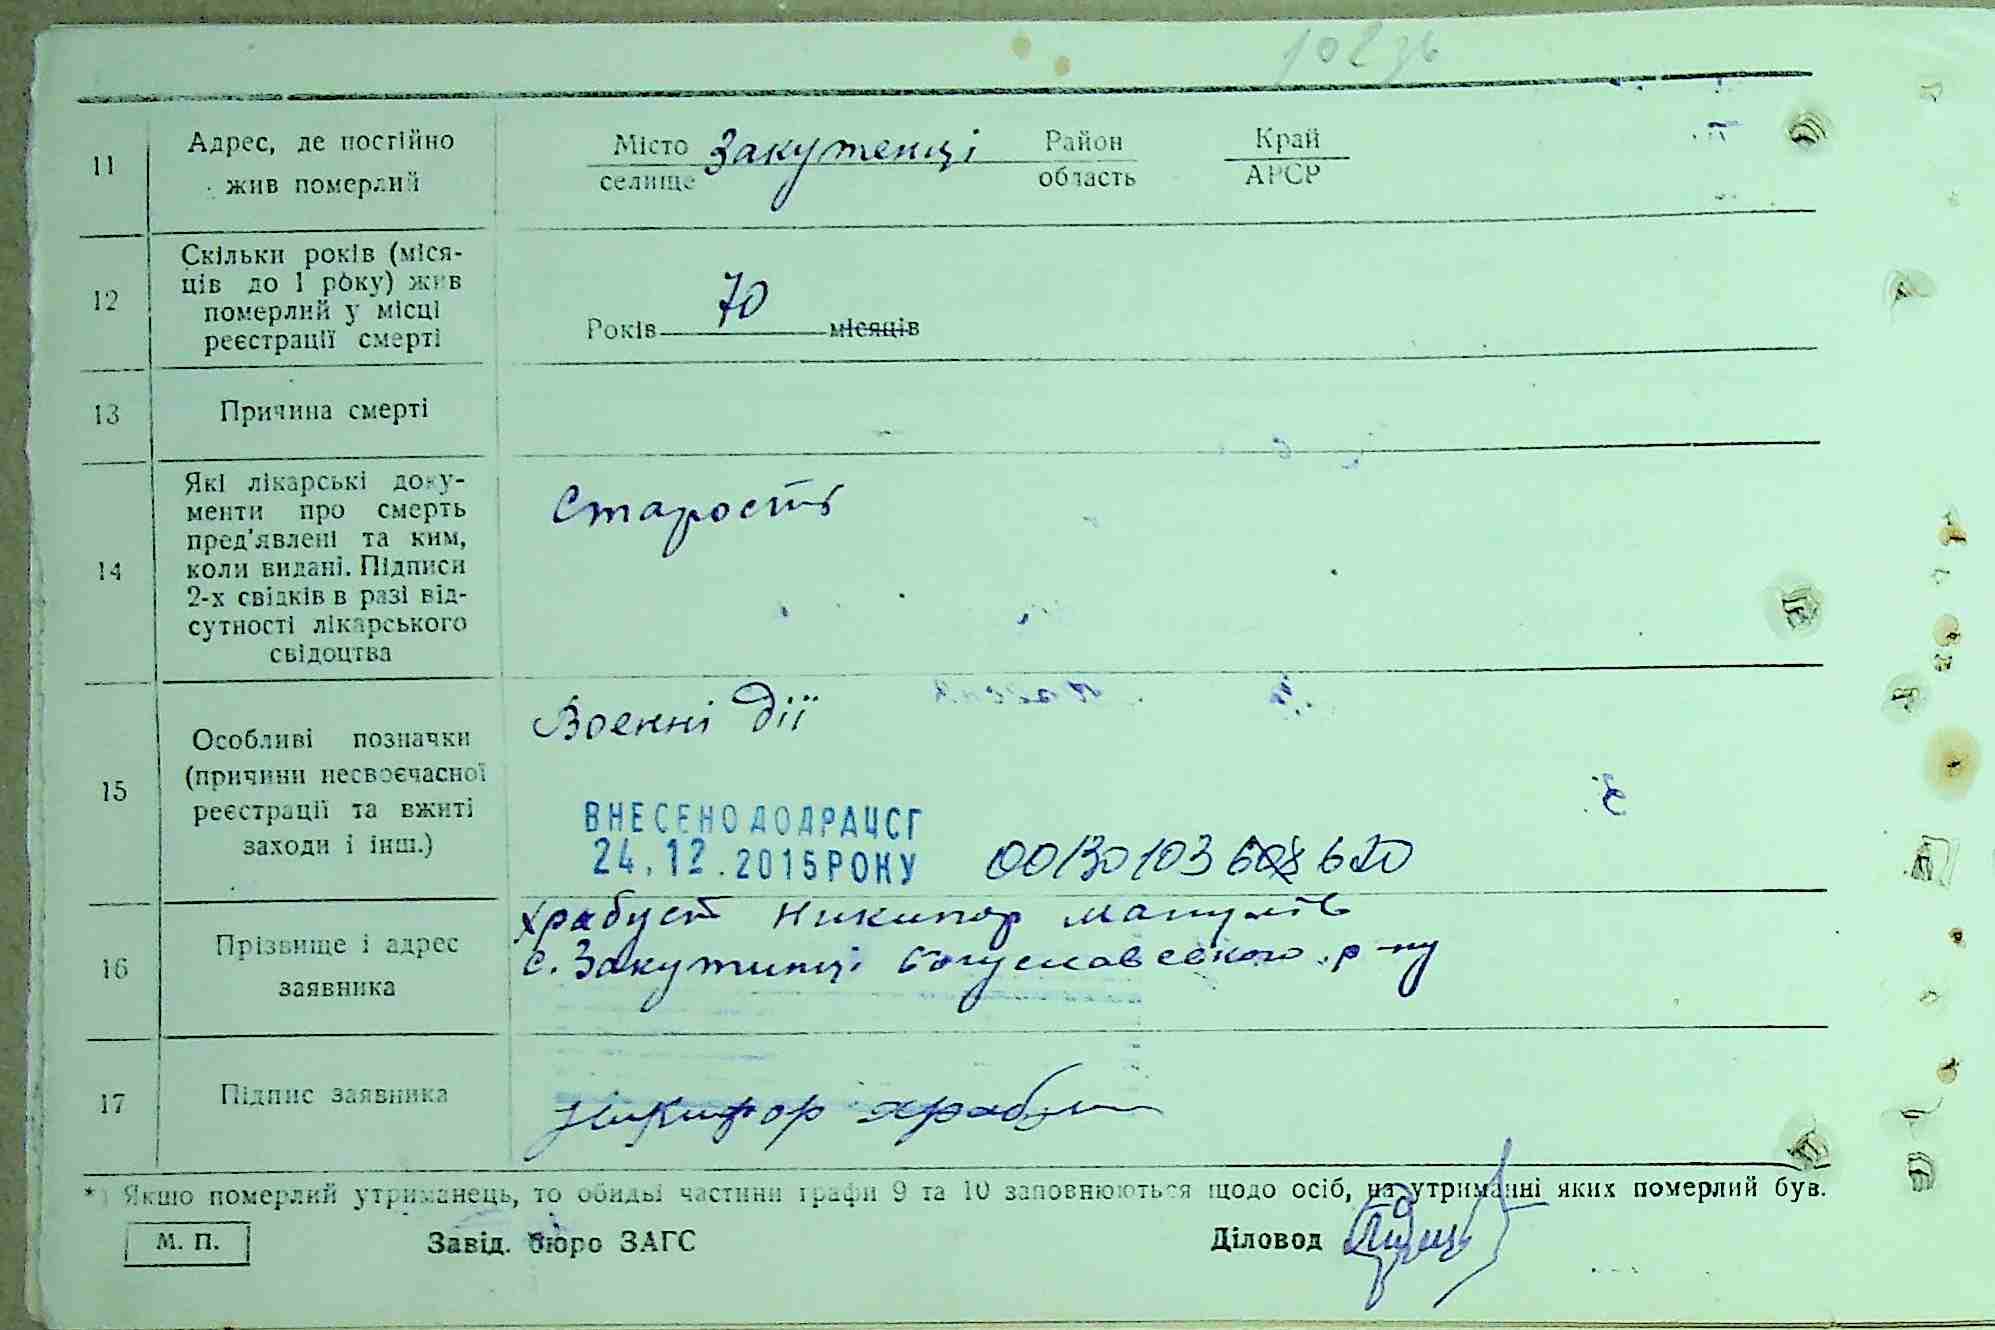 11
Адрес, де постійно
жив померлий
Місто Закутенці Район Край
селище область АРСР
12
Скільки років (міся-
ців до 1 року) жив
померлий у місці
реєстрації смерті
70
Років місяців
13
Причина смерті
14
Які лікарські доку-
менти про смерть
пред'явлені та ким,
коли видані. Підписи
2-х свідків в разі від-
сутності лікарського
свідоцтва
Старость
15
Особливі позначки
(причини несвоєчасної
реєстрації та вжиті
заходи і інш.)
Воєнні дії
ВНЕСЕНО ДО ДРАЦСГ
24.12.2015 РОКУ 00130103608 620
16
Прізвище і адрес
заявника
Храбуст Никипор
с. Закутинці Богуславського р-ну
17
Підпис заявника
Никифор
*) Якщо померлий утриманець, то обидві частини графи 9 та 10 заповнюються щодо осіб, на утриманні яких померлий був.
М. П.
Завід. бюро ЗАГС
Діловод